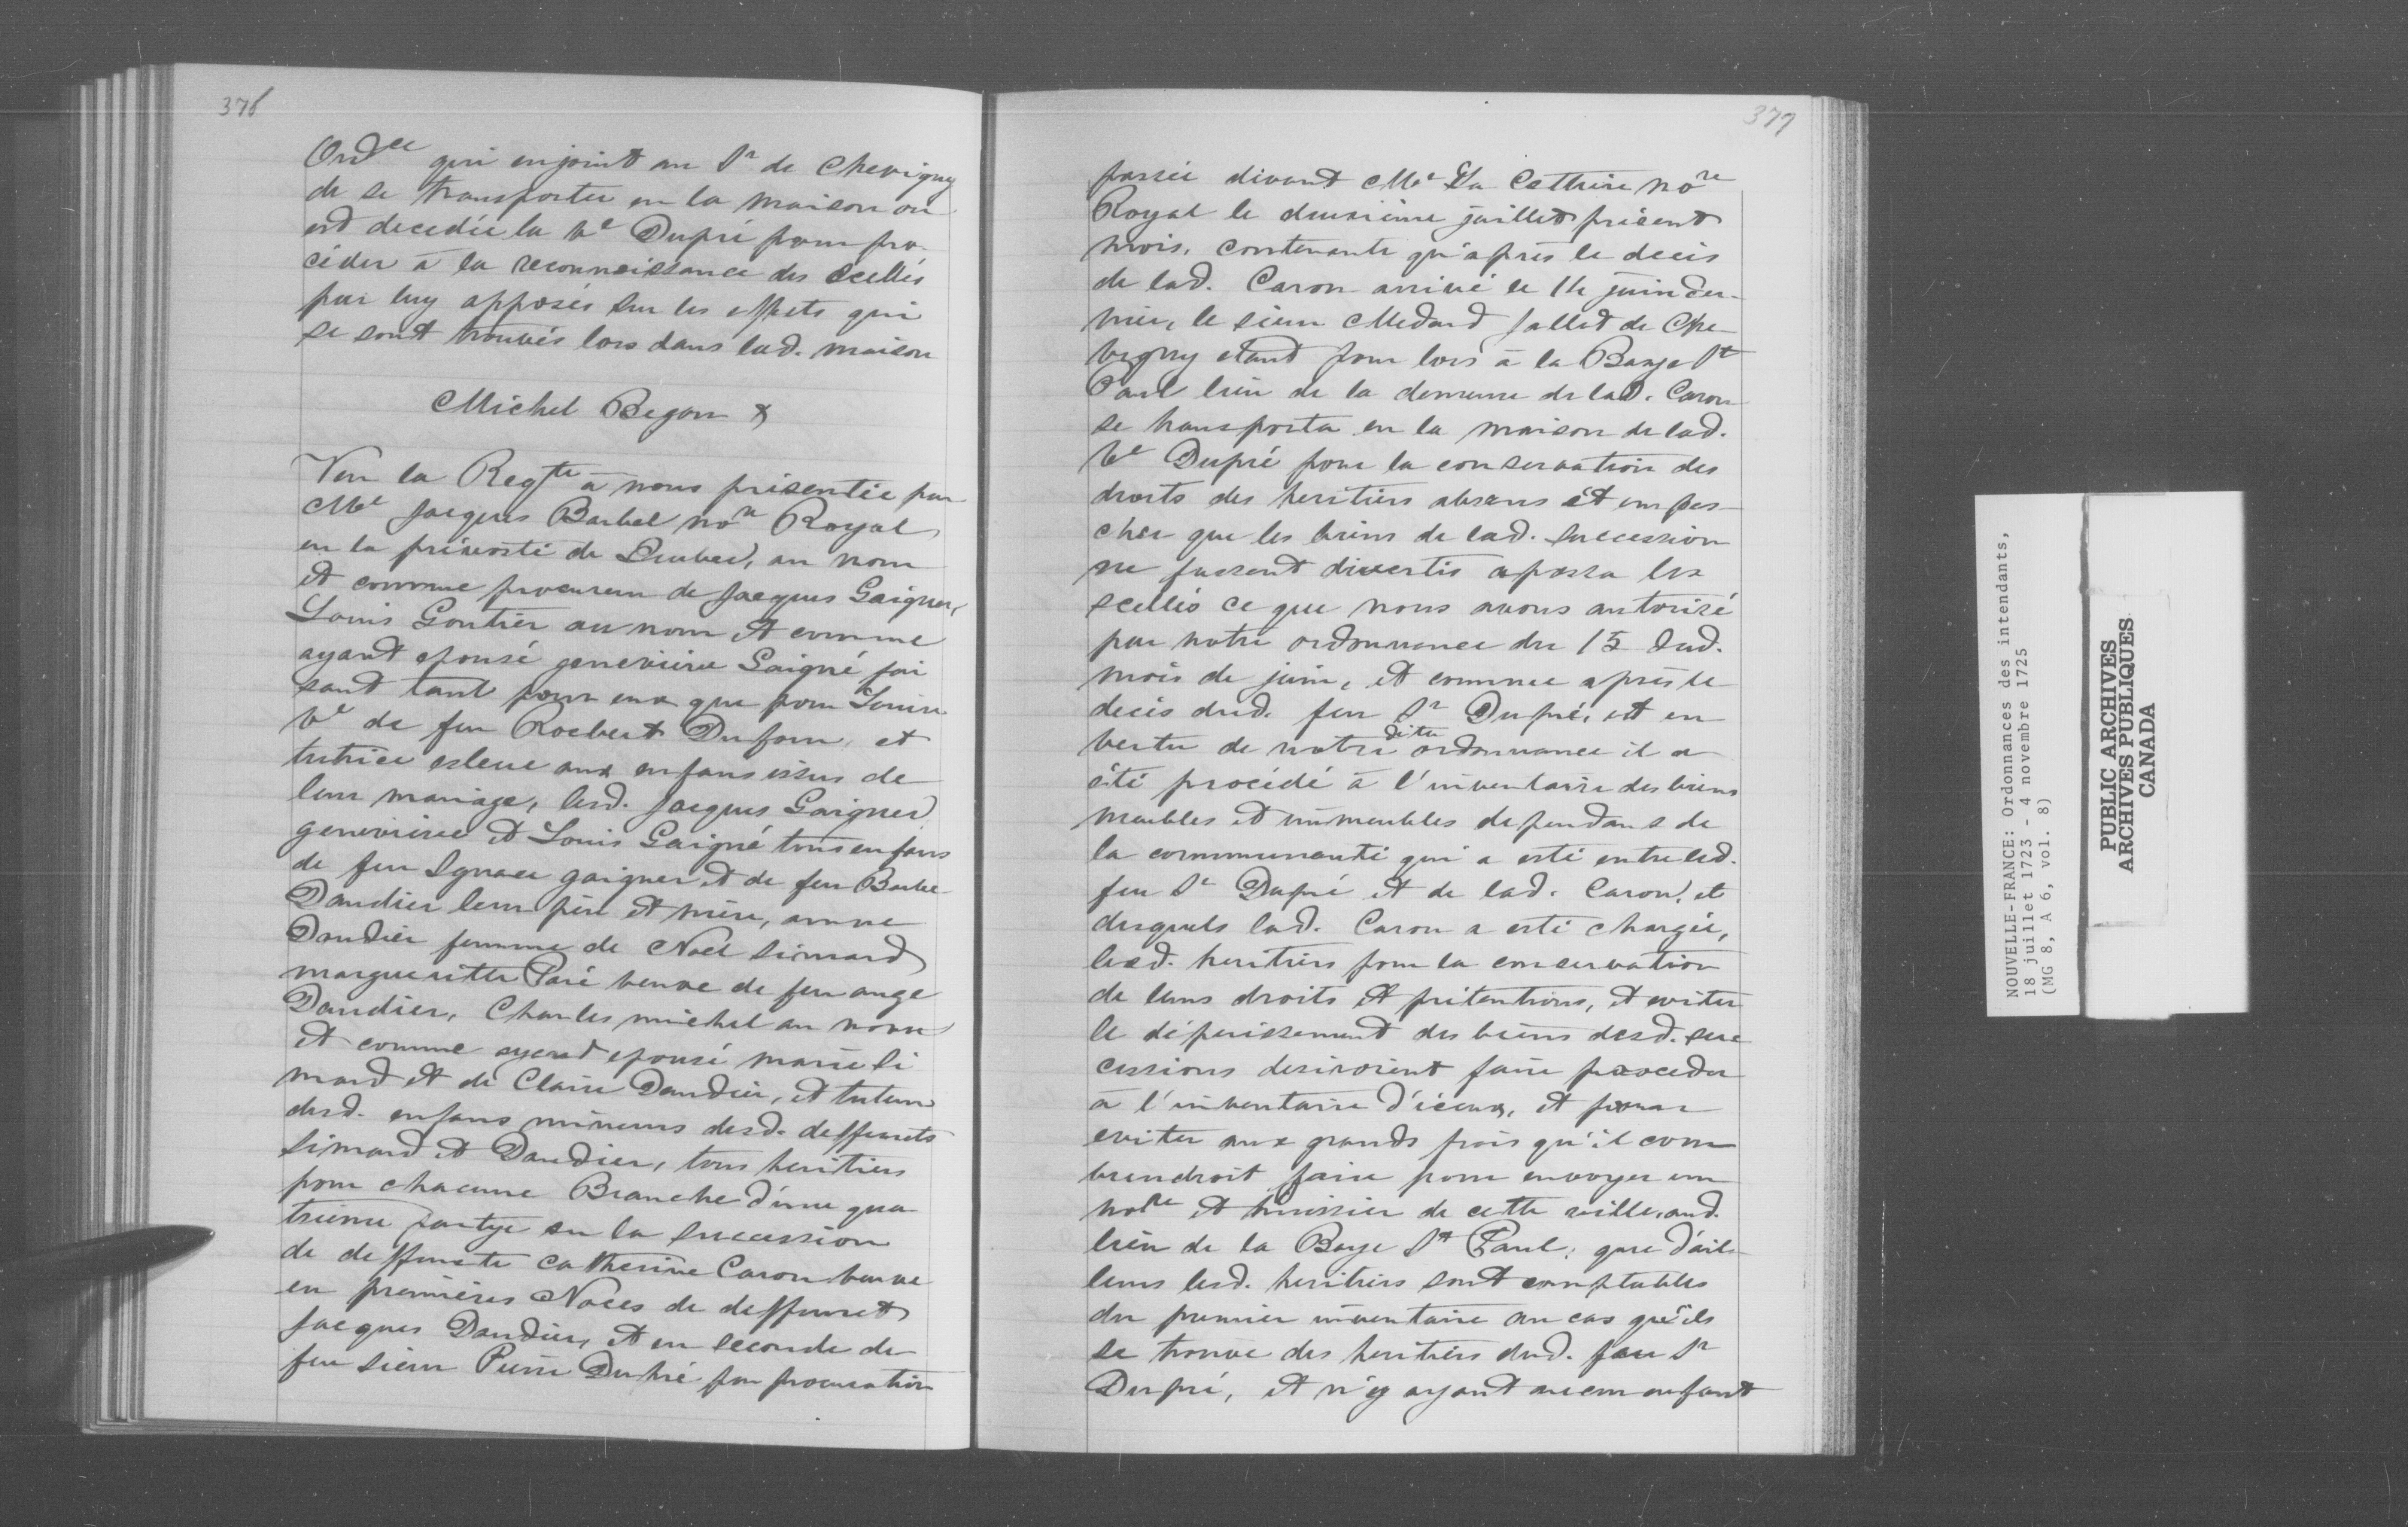 376
Ordce qui enjoint au Sr de Chevigny
de se transporter en la maison ou
est decedée la Ve Dupré pour pro-
céder à la reconnoissance des scellés
par luy apposés sur les effets qui
se sont trouvés lors dans lad. maison
Michel Begon
Veu la Reqte à nous présentée par
Me Jacques Barbel nore Royal
en la prévosté de Quebec, au nom
et comme procureur de Jacques Gaigner,
Louis Gontier au nom et comme
ayant epousé genevieve Gaigné fai
sant tant pour eux que pour Louise
Ve de feu Roebert Dufour, et
tutrice esleue aux enfans issus de
leur mariage, lesd. Jacques Gaigner
genevieve et Louis Gaigné tous enfans
de feu Ignace gaigner et de feu Barbe
Daudier leur père et mère, anne
Daudier femme de Noël simard
margueritte Paré veuve de feu ange
Daudier, Charles michel au nom
et comme ayant epousé marie Si
mard et de Claire Daudier, et tuteur
desd. enfans mineurs desd. deffunts
Simard et Daudier, tous heritiers
pour chacune Branche d'une qua
trieme partye en la succession
de deffunte Catherine Caron veuve
en premières Noces de deffunt
Jacques Daudier, et en seconde de
feu sieur Pierre Dupré par procuration
377
passée devant Me La Cettiere nore
Royal le deuxième juillet présent
mois, contenante qu'après le decès
de lad. Caron arrivé le 14 juin der-
nier, le sieur Medard Jallet de Che
vigny etant pour lors à la Baye St
Paul lieu de la demeure de lad. Caron
se transporta en la maison de lad.
Ve Dupré pour la conservation des
droits des heritiers absens et empes-
cher que les biens de lad. succession
ne fussent divertis aposa les
scellés ce que nous avons autorisé
par notre ordonnance du 15 dud.
mois de juin, et comme après le
decès dud. feu Sr Dupré, et en
vertu de notre dite ordonnance il a
été procédé à l'inventaire des biens
meubles et immeubles dependans de
la communauté qui a esté entre led.
feu Sr Dupré et de lad. Caron, et
desquels lad. Caron a esté chargée,
lesd. heritiers pour la conservation
de leurs droits et prétentions, et eviter
le déperissement des biens desd. suc
cessions desiroient faire proceder
a l'inventaire d'iceux, et pour
eviter aux grands frais qu'il con
viendroit faire pour envoyer un
nore et huissier de cette ville, aud.
lieu de la Baye St Paul; que d'ail-
leurs lesd. heritiers sont comptables
du premier inventaire au cas qu'ils
se trouve des heritiers dud. feu Sr
Dupré, et n'y ayant aucun enfant
NOUVELLE-FRANCE: Ordonnances des intendants,
18 juillet 1723 - 4 novembre 1725
(MG 8, A 6, vol. 8)
PUBLIC ARCHIVES
ARCHIVES PUBLIQUES
CANADA